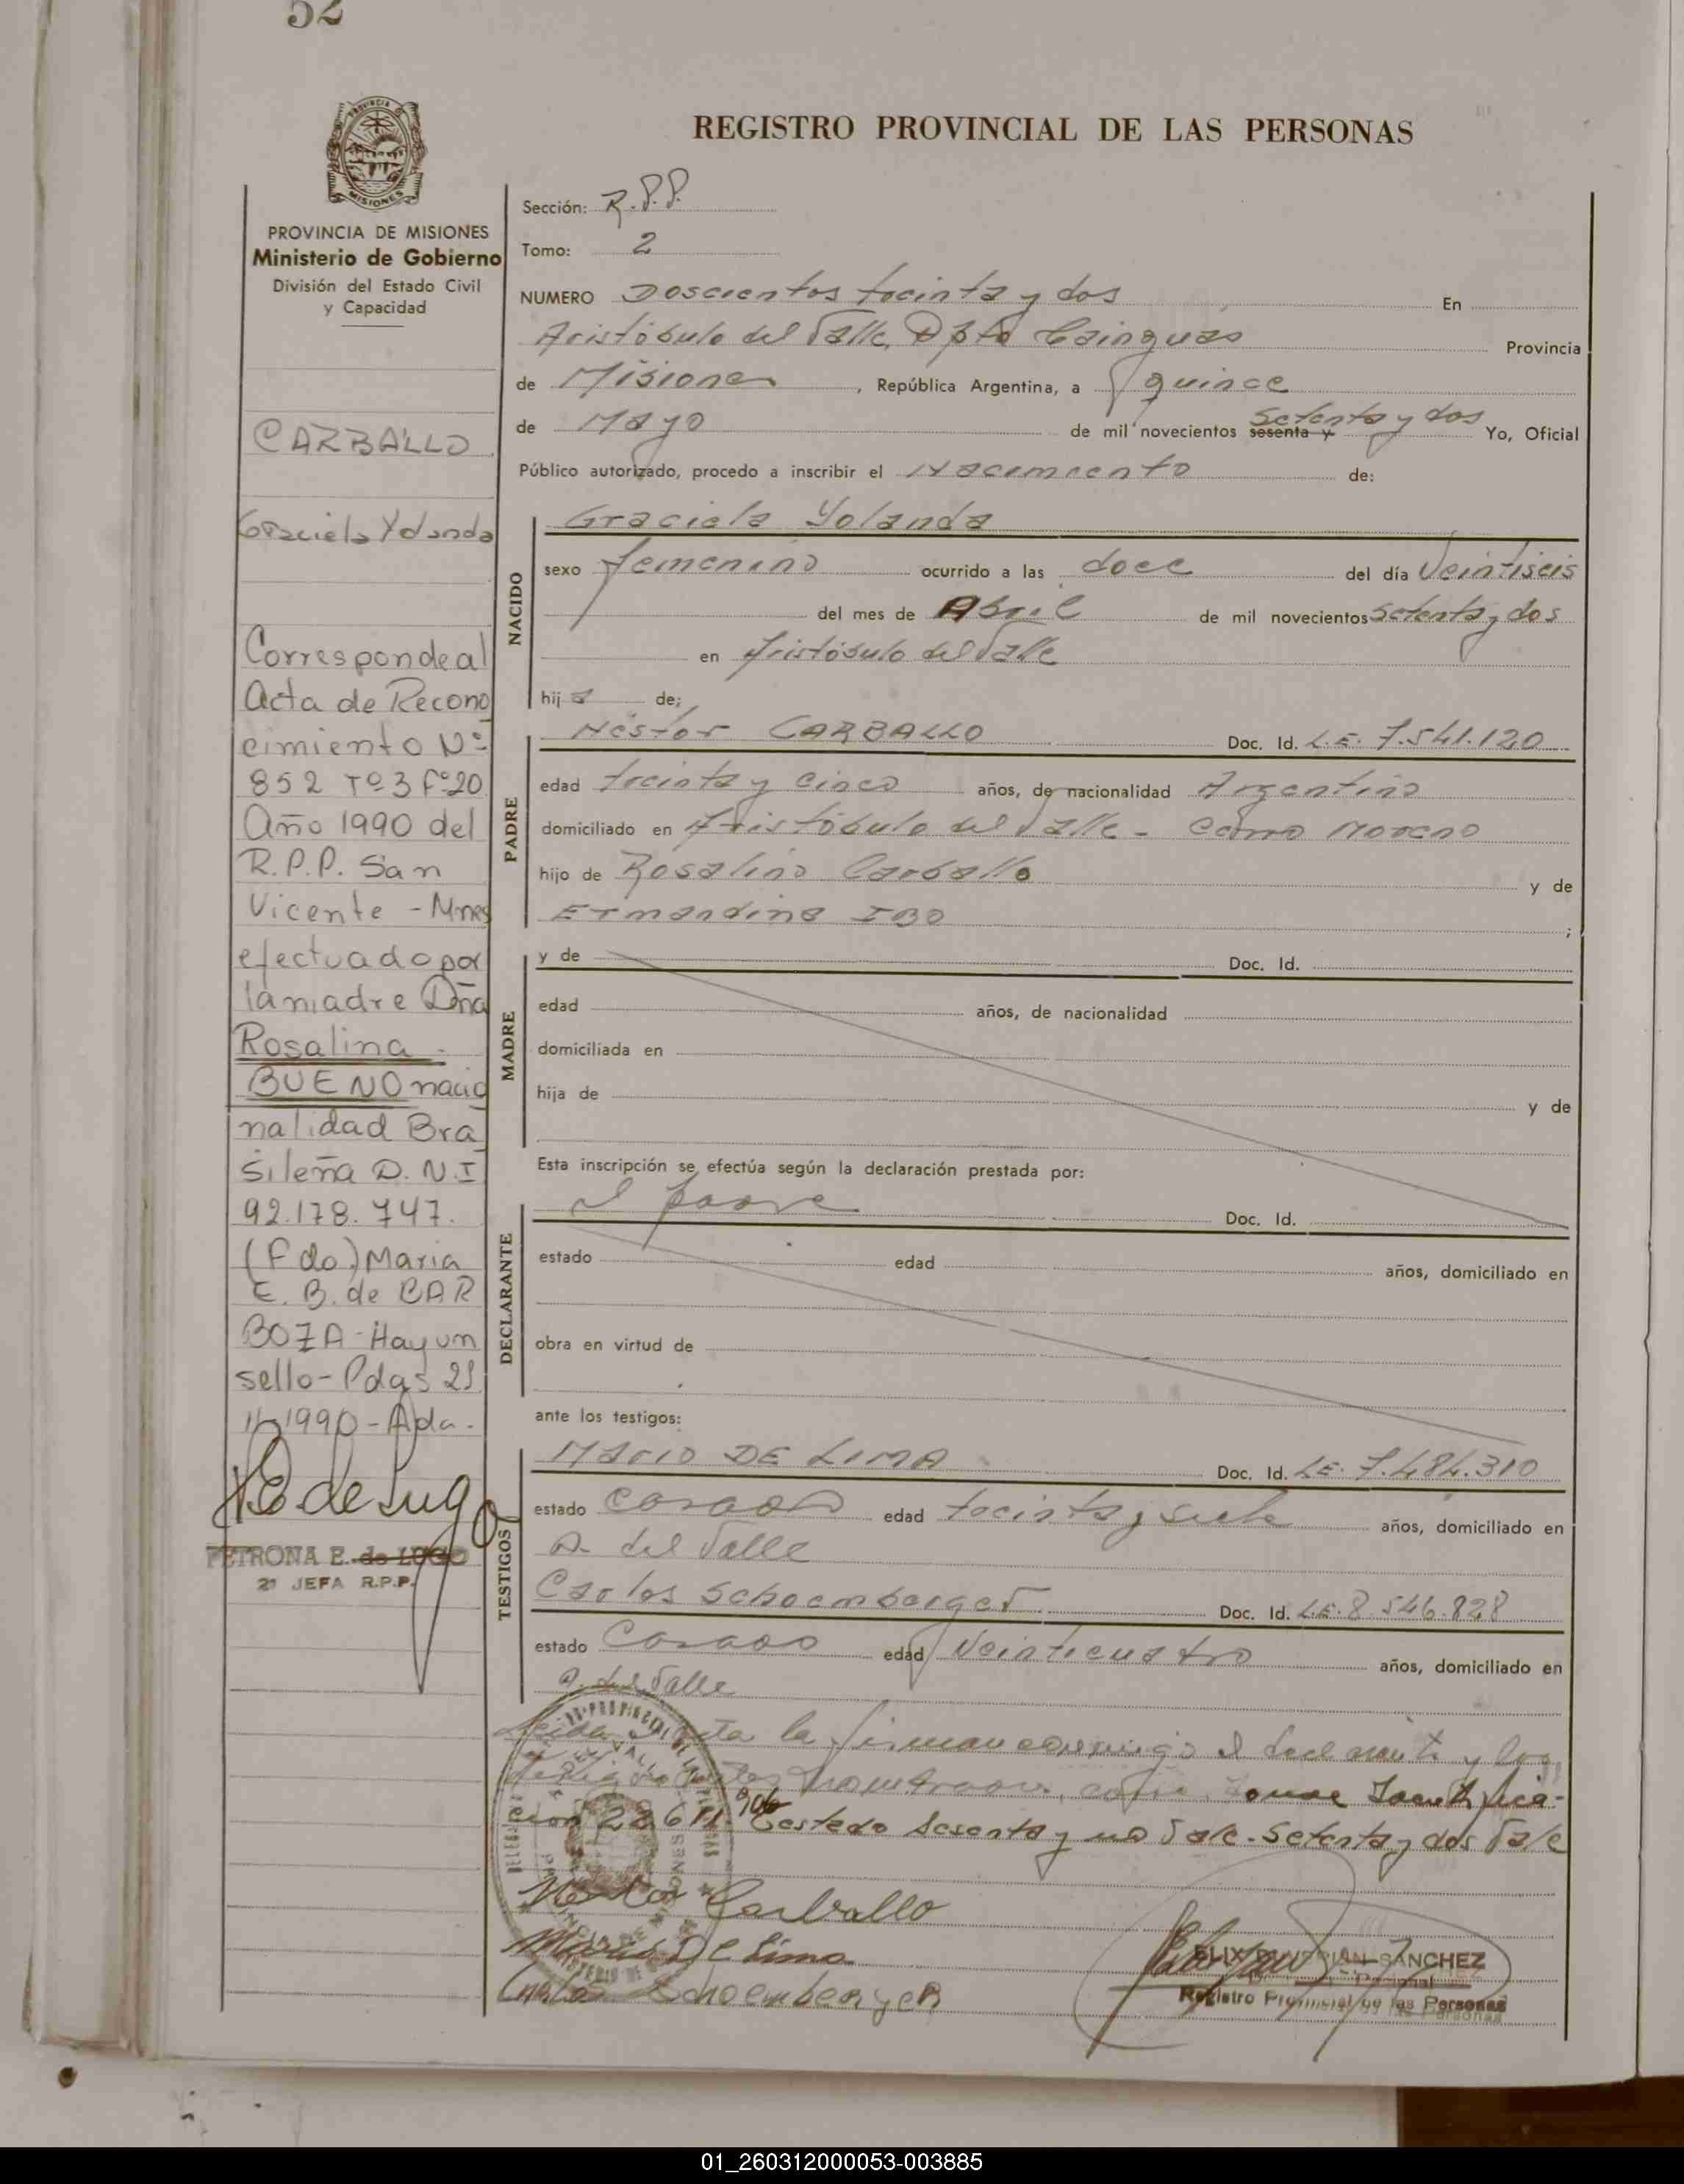 52
REGISTRO PROVINCIAL DE LAS PERSONAS
PROVINCIA
MISIONES
PROVINCIA DE MISIONES
Ministerio de Gobierno
División del Estado Civil
y Capacidad
CARBALLO
Graciela Yolanda
Corresponde al
Acta de Recono
cimiento Nº
852 Tº3 Fº20
Año 1990 del
R.P.P. San
Vicente - Mnes
efectuado por
la madre Dña
Rosalina
BUENO nacio
nalidad Bra
sileña D.N.I
92.178.747.
(Fdo) Maria
E. B. de BAR
BOZA - Hay un
sello - Pdas 21
1990 - Ada.
PETRONA E. de LUGO
2ª JEFA R.P.P.
Sección: R.P.P.
Tomo: 2
NUMERO Doscientos treinta y dos En
Aristóbulo del Valle, Dpto Cainguas Provincia
de Misiones, República Argentina, a quince
de Mayo de mil novecientos sesenta y Setenta y dos Yo, Oficial
Público autorizado, procedo a inscribir el Nacimiento de:
NACIDO
Graciela Yolanda
sexo femenino ocurrido a las doce del día Veintiseis
del mes de Abril de mil novecientos Setenta y dos
en Aristóbulo del Valle
hija de;
PADRE
Néstor CARBALLO Doc. Id. L.E. 7.541.120
edad treinta y cinco años, de nacionalidad Argentino
domiciliado en Aristóbulo del Valle - Cerro Moreno
hijo de Rosalino Carballo y de
Ermandina IBO ;
MADRE
y de Doc. Id.
edad años, de nacionalidad
domiciliada en
hija de y de
Esta inscripción se efectúa según la declaración prestada por:
DECLARANTE
el padre Doc. Id.
estado edad años, domiciliado en
obra en virtud de
ante los testigos:
TESTIGOS
Mario DE LIMA Doc. Id. L.E. 7.484.310
estado casado edad treinta y siete años, domiciliado en
A. del Valle
Carlos Schoemberger Doc. Id. L.E. 8.546.828
estado Casado edad Veinticuatro años, domiciliado en
A. del Valle
Leida acta la firman conmigo el declarante y los
testigos
Testado sesenta y no Vale. Setenta y dos Vale
Nestor Carballo
Mario De Lima
Carlos Schoemberger
SANCHEZ
Registro Provincial de las Personas
01_260312000053-003885